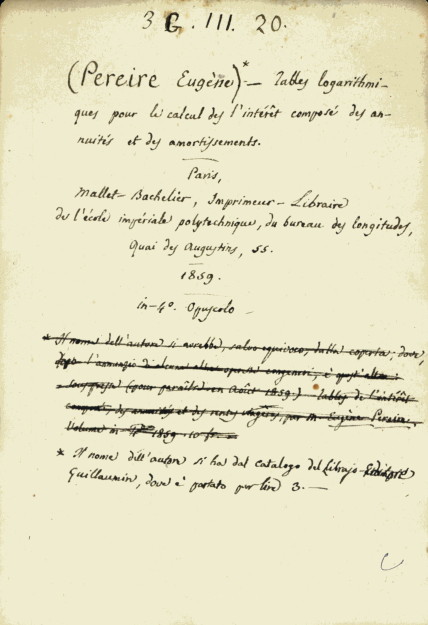 3 G. III. 20.
(Pereire Eugène)* — Tables logarithmi-
ques pour le calcul des l'intérêt composé des an-
nuités et des amortissements.
Paris,
Mallet-Bachelier, Imprimeur-Libraire
de l'école impériale polytechnique, du bureau des longitudes,
Quai des Augustins, 55.
1859.
in-4º. Opuscolo
* Il nome dell'autore si avrebbe, salvo equivoco, dalla coperta, dove,
dopo l'annunzio di alcune altre opere congeneri, è quest'altra:
sous presse (pour paraître en Août 1859.) Tables de l'intérêt
composé, des annuités et des rentes viagères, par M. Eugène Pereire.
Volume in 1859. 10 fr.
* Il nome dell'autore si ha dal catalogo del Librajo
Guillaumin, dove è portato per lire 3. —